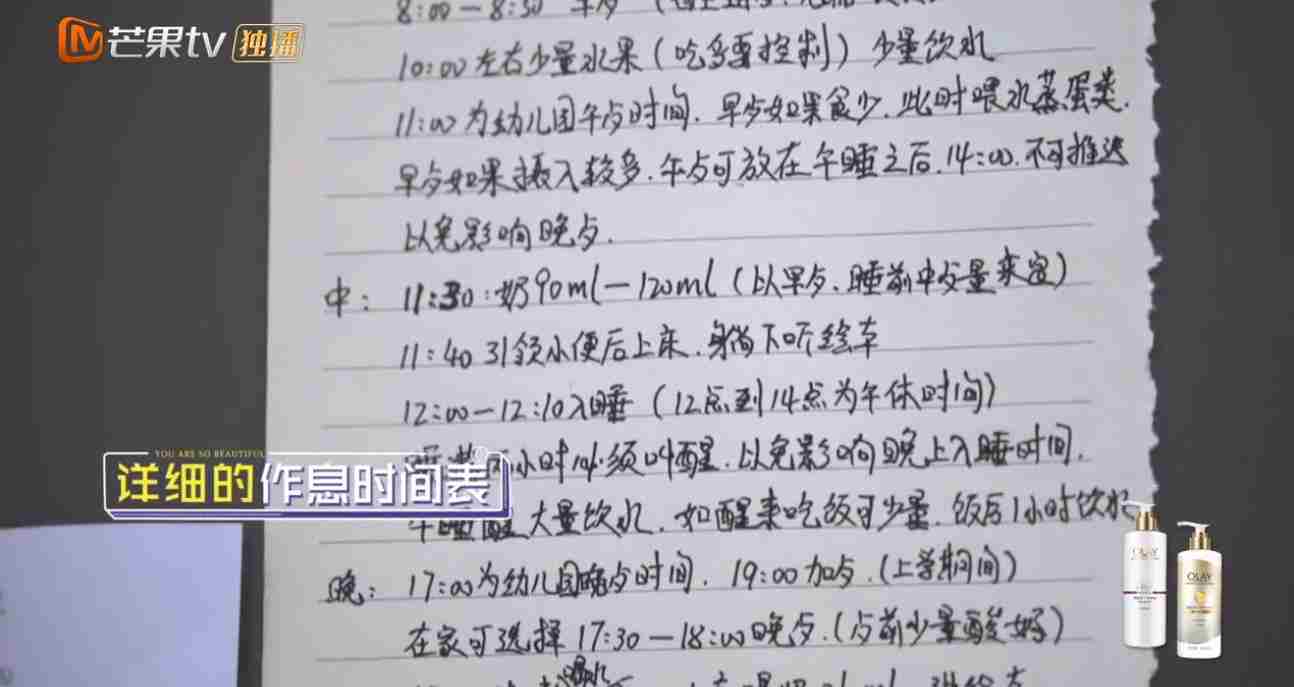 芒果tv 独播
8:00-8:30 早歺
10:00左右少量水果（吃多要控制）少量饮水
11:00为幼儿园午歺时间．早歺如果食少．此时喂水蒸蛋类．
早歺如果摄入较多．午歺可放在午睡之后．14:00．不可推迟
以免影响晚歺．
中：11:30：奶90ml-120ml（以早歺．睡前中歺量来定）
11:40引领小便后上床．躺下听绘本
12:00-12:10入睡（12点到14点为午休时间）
小时必须叫醒．以免影响晚上入睡时间．
YOU ARE SO BEAUTIFUL
详细的作息时间表
午睡醒大量饮水．如醒来吃饭可少量．饭后1小时饮水
晚：17:00为幼儿园晚歺时间．19:00加歺．（上学期间）
在家可选择17:30-18:00晚歺．（歺前少量酸奶）
OLAY
OLAY